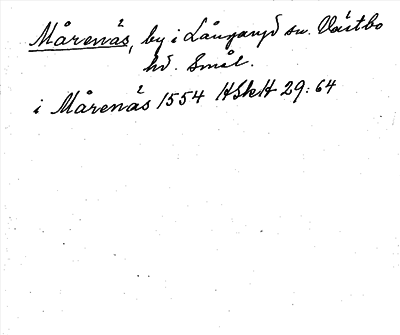 Mårenäs, by i Långaryd sn. Västbo
hd. Smål.
i Mårenäs 1554 HSkH 29:64